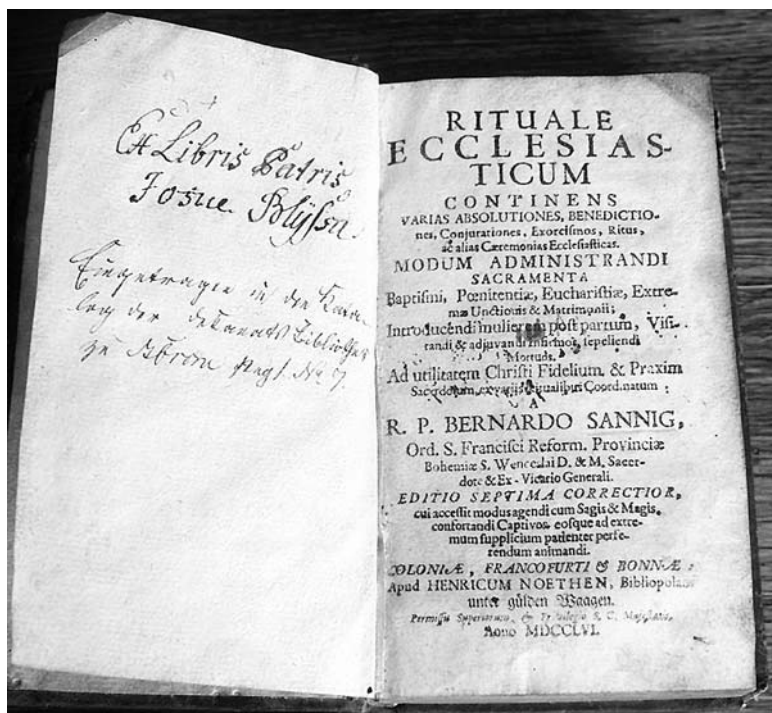 Ex Libris Patris
Josue
Eingetragen in den Kata-
log der Dekanats Bibliothek
zu
RITUALE
ECCLESIAS-
TICUM
CONTINENS
VARIAS ABSOLUTIONES, BENEDICTIO-
nes, Conjurationes, Exorcismos, Ritus,
ac alias Cæremonias Ecclesiasticas.
MODUM ADMINISTRANDI
SACRAMENTA
Baptismi, Pœnitentiæ, Eucharistiæ, Extre-
mæ Unctionis & Matrimonii;
Introducendi mulierem post partum, Visi-
tandi & adjuvandi infirmos, sepeliendi
Mortuos.
Ad utilitatem Christi Fidelium & Praxim
Sacerdotum, ex variis Ritualibus Coordinatum
A
R. P. BERNARDO SANNIG,
Ord. S. Francisci Reform. Provinciæ
Bohemiæ S. Wenceslai D. & M. Sacer-
dote & Ex-Vicario Generali.
EDITIO SEPTIMA CORRECTIOR,
cui accessit modus agendi cum Sagis & Magis,
confortandi Captivos, eosque ad extre-
mum supplicium patienter perfe-
rendum animandi.
COLONIÆ, FRANCOFURTI & BONNÆ,
Apud HENRICUM NOETHEN, Bibliopolam
unter gülden Waagen.
Permissu Superiorum, & Privilegio S. C. Majestatis.
Anno MDCCLVI.